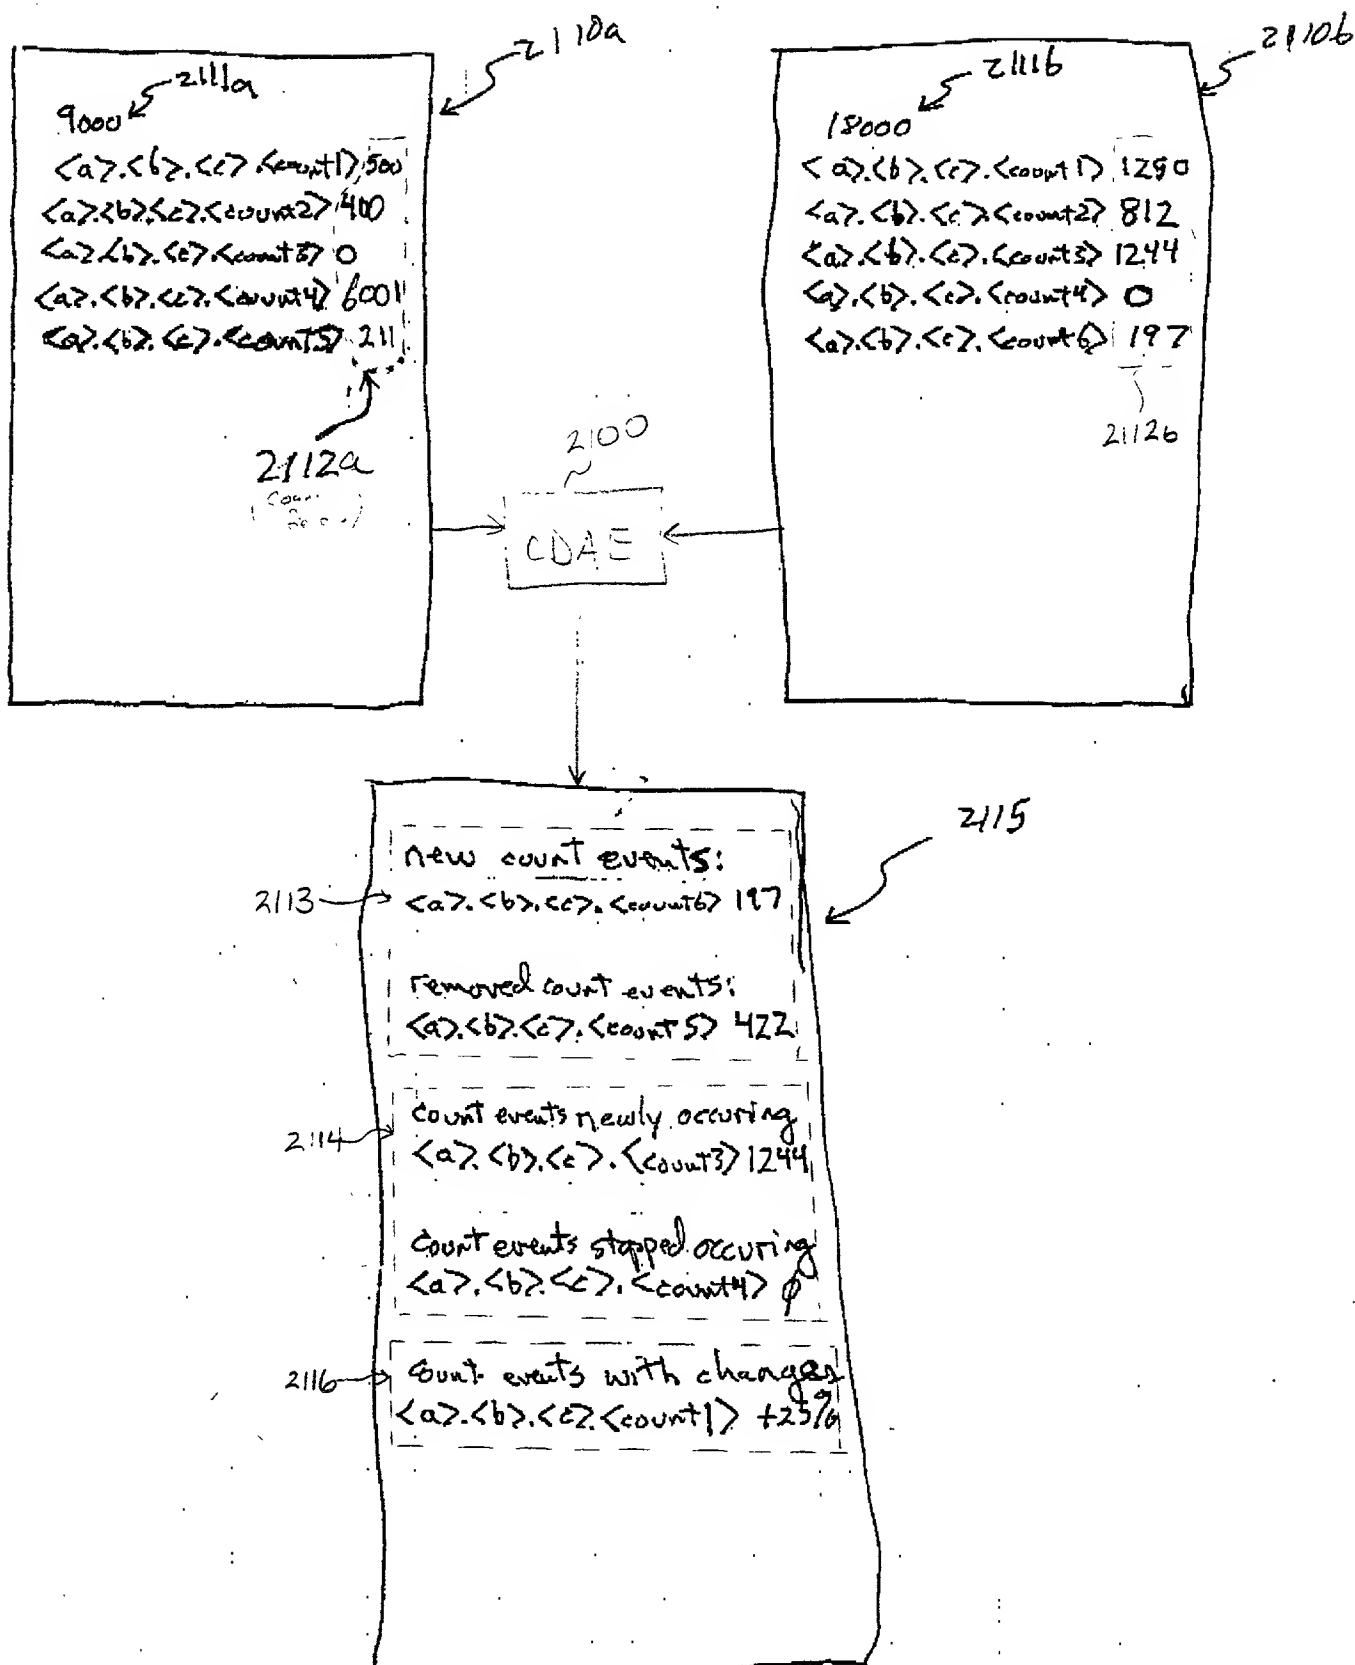 2110a
2111a
9000
<a>.<b>.<c>.<count1> 500
<a>.<b>.<c>.<count2> 400
<a>.<b>.<c>.<count3> 0
<a>.<b>.<c>.<count4> 6001
<a>.<b>.<c>.<count5> 211
2112a
2110b
2111b
18000
<a>.<b>.<c>.<count1> 1250
<a>.<b>.<c>.<count2> 812
<a>.<b>.<c>.<count3> 1244
<a>.<b>.<c>.<count4> 0
<a>.<b>.<c>.<count6> 197
2112b
2100
CDAE
2115
new count events:
2113
<a>.<b>.<c>.<count6> 197
removed count events:
<a>.<b>.<c>.<count5> 422
count events newly occuring
2114
<a>.<b>.<c>.<count3> 1244
count events stopped occuring
<a>.<b>.<c>.<count4> 0
2116
count events with changes
<a>.<b>.<c>.<count1> +25%